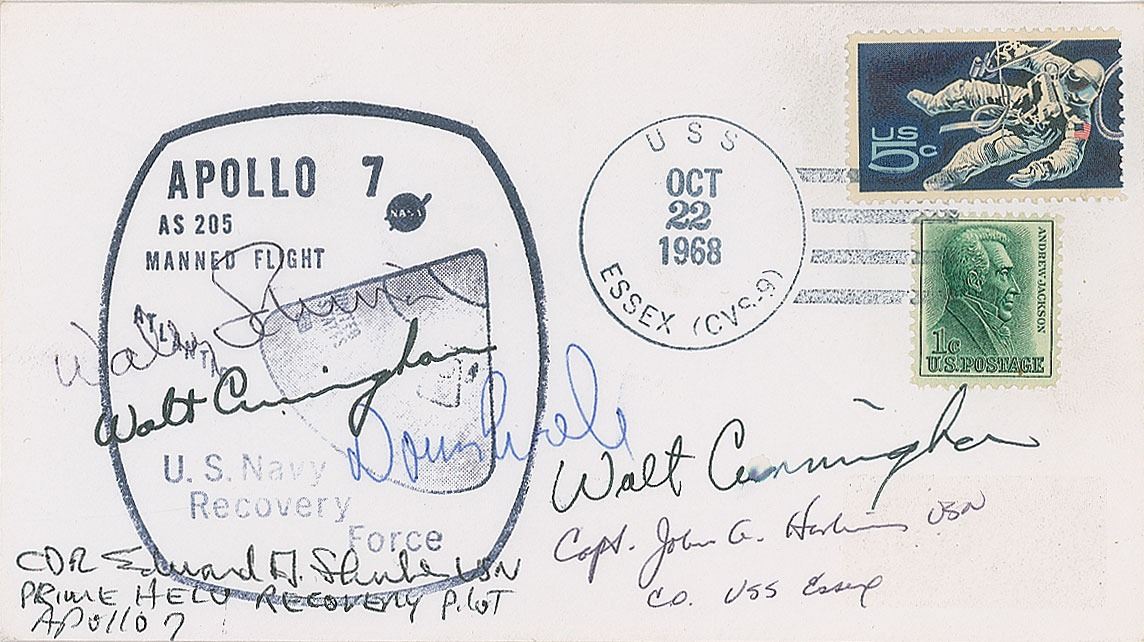 APOLLO 7
NASA
AS 205
MANNED FLIGHT
ATLANTIC
U.S. Navy
Recovery
Force
USS
OCT
22
1968
ESSEX (CVS-9)
US
5c
ANDREW JACKSON
1c
U.S. POSTAGE
Wally Schirra
Walt Cunningham
Donn Eisele
Walt Cunningham
Capt. John A. Harkins USN
C.O. USS Essex
CDR Edward A. USN
PRIME HELO RECOVERY PILOT
APOLLO 7